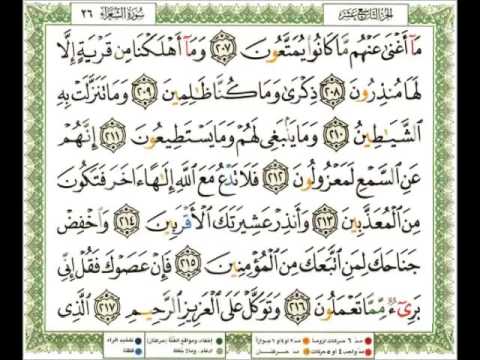 الجزء التاسع عشر سورة الشعراء ٢٦
مَآ أَغْنَىٰ عَنْهُم مَّا كَانُوا۟ يُمَتَّعُونَ ٢٠٧ وَمَآ أَهْلَكْنَا مِن قَرْيَةٍ إِلَّا
لَهَا مُنذِرُونَ ٢٠٨ ذِكْرَىٰ وَمَا كُنَّا ظَـٰلِمِينَ ٢٠٩ وَمَا تَنَزَّلَتْ بِهِ
ٱلشَّيَـٰطِينُ ٢١٠ وَمَا يَنۢبَغِى لَهُمْ وَمَا يَسْتَطِيعُونَ ٢١١ إِنَّهُمْ
عَنِ ٱلسَّمْعِ لَمَعْزُولُونَ ٢١٢ فَلَا تَدْعُ مَعَ ٱللَّهِ إِلَـٰهًا ءَاخَرَ فَتَكُونَ
مِنَ ٱلْمُعَذَّبِينَ ٢١٣ وَأَنذِرْ عَشِيرَتَكَ ٱلْأَقْرَبِينَ ٢١٤ وَٱخْفِضْ
جَنَاحَكَ لِمَنِ ٱتَّبَعَكَ مِنَ ٱلْمُؤْمِنِينَ ٢١٥ فَإِنْ عَصَوْكَ فَقُلْ إِنِّى
بَرِىٓءٌ مِّمَّا تَعْمَلُونَ ٢١٦ وَتَوَكَّلْ عَلَى ٱلْعَزِيزِ ٱلرَّحِيمِ ٢١٧ ٱلَّذِى